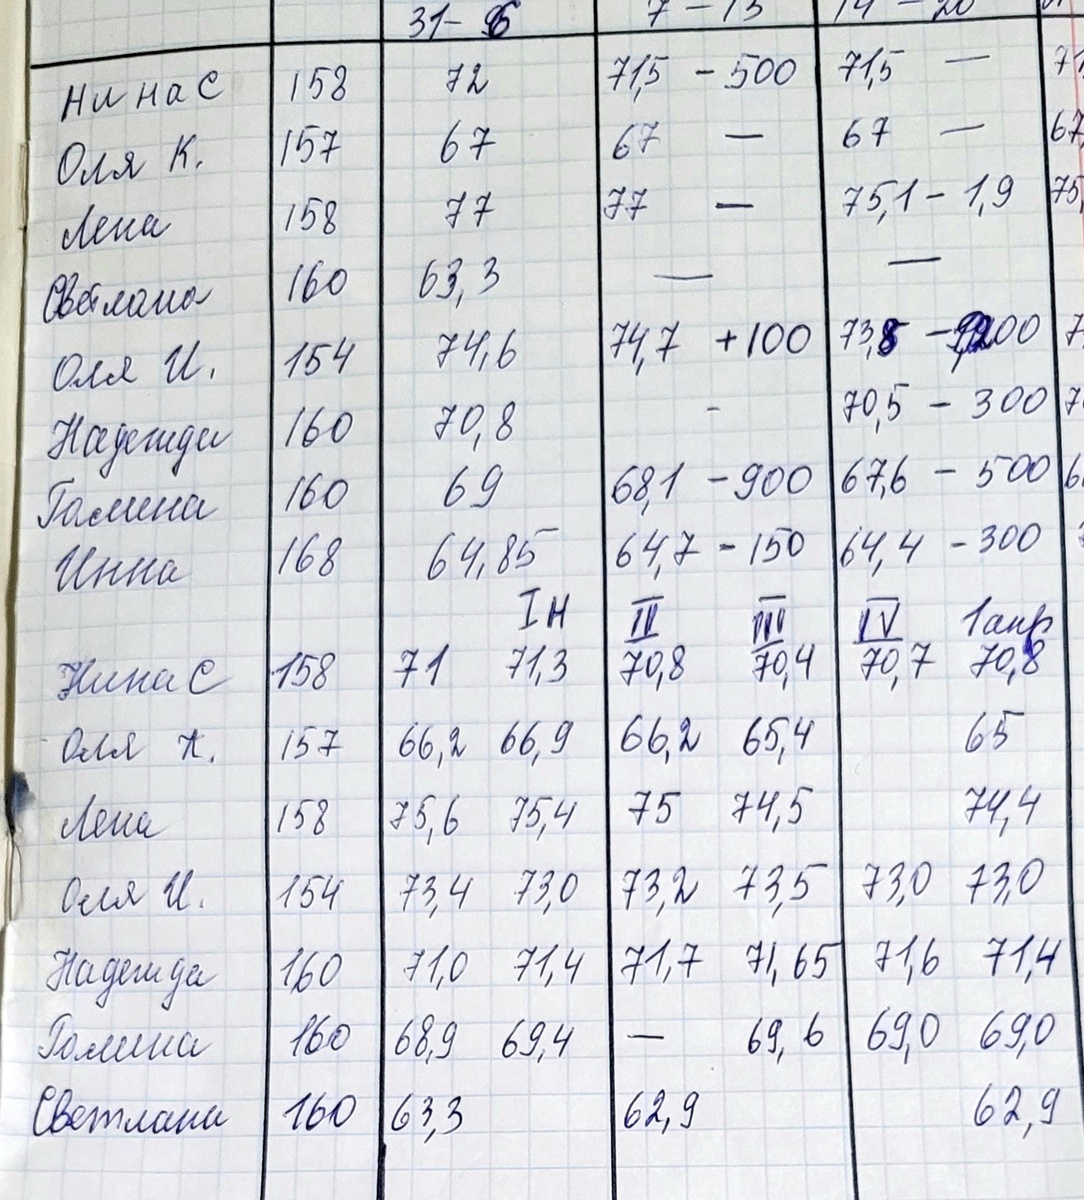 31-6 7-13 14-20
Нина С 158 72 71,5 -500 71,5 —
Оля К. 157 67 67 — 67 — 67
Лена 158 77 77 — 75,1 - 1,9 75,
Светлана 160 63,3 — —
Оля И. 154 74,6 74,7 +100 73,5
Надежда 160 70,8 - 70,5 - 300
Галина 160 69 68,1 -900 67,6 - 500
Инна 168 64,85 64,7 -150 64,4 -300
Iн II III IV 1апр
Нина С 158 71 71,3 70,8 70,4 70,7 70,8
Оля К. 157 66,2 66,9 66,2 65,4 65
Лена 158 75,6 75,4 75 74,5 74,4
Оля И. 154 73,4 73,0 73,2 73,5 73,0 73,0
Надежда 160 71,0 71,4 71,7 71,65 71,6 71,4
Галина 160 68,9 69,4 — 69,6 69,0 69,0
Светлана 160 63,3 62,9 62,9